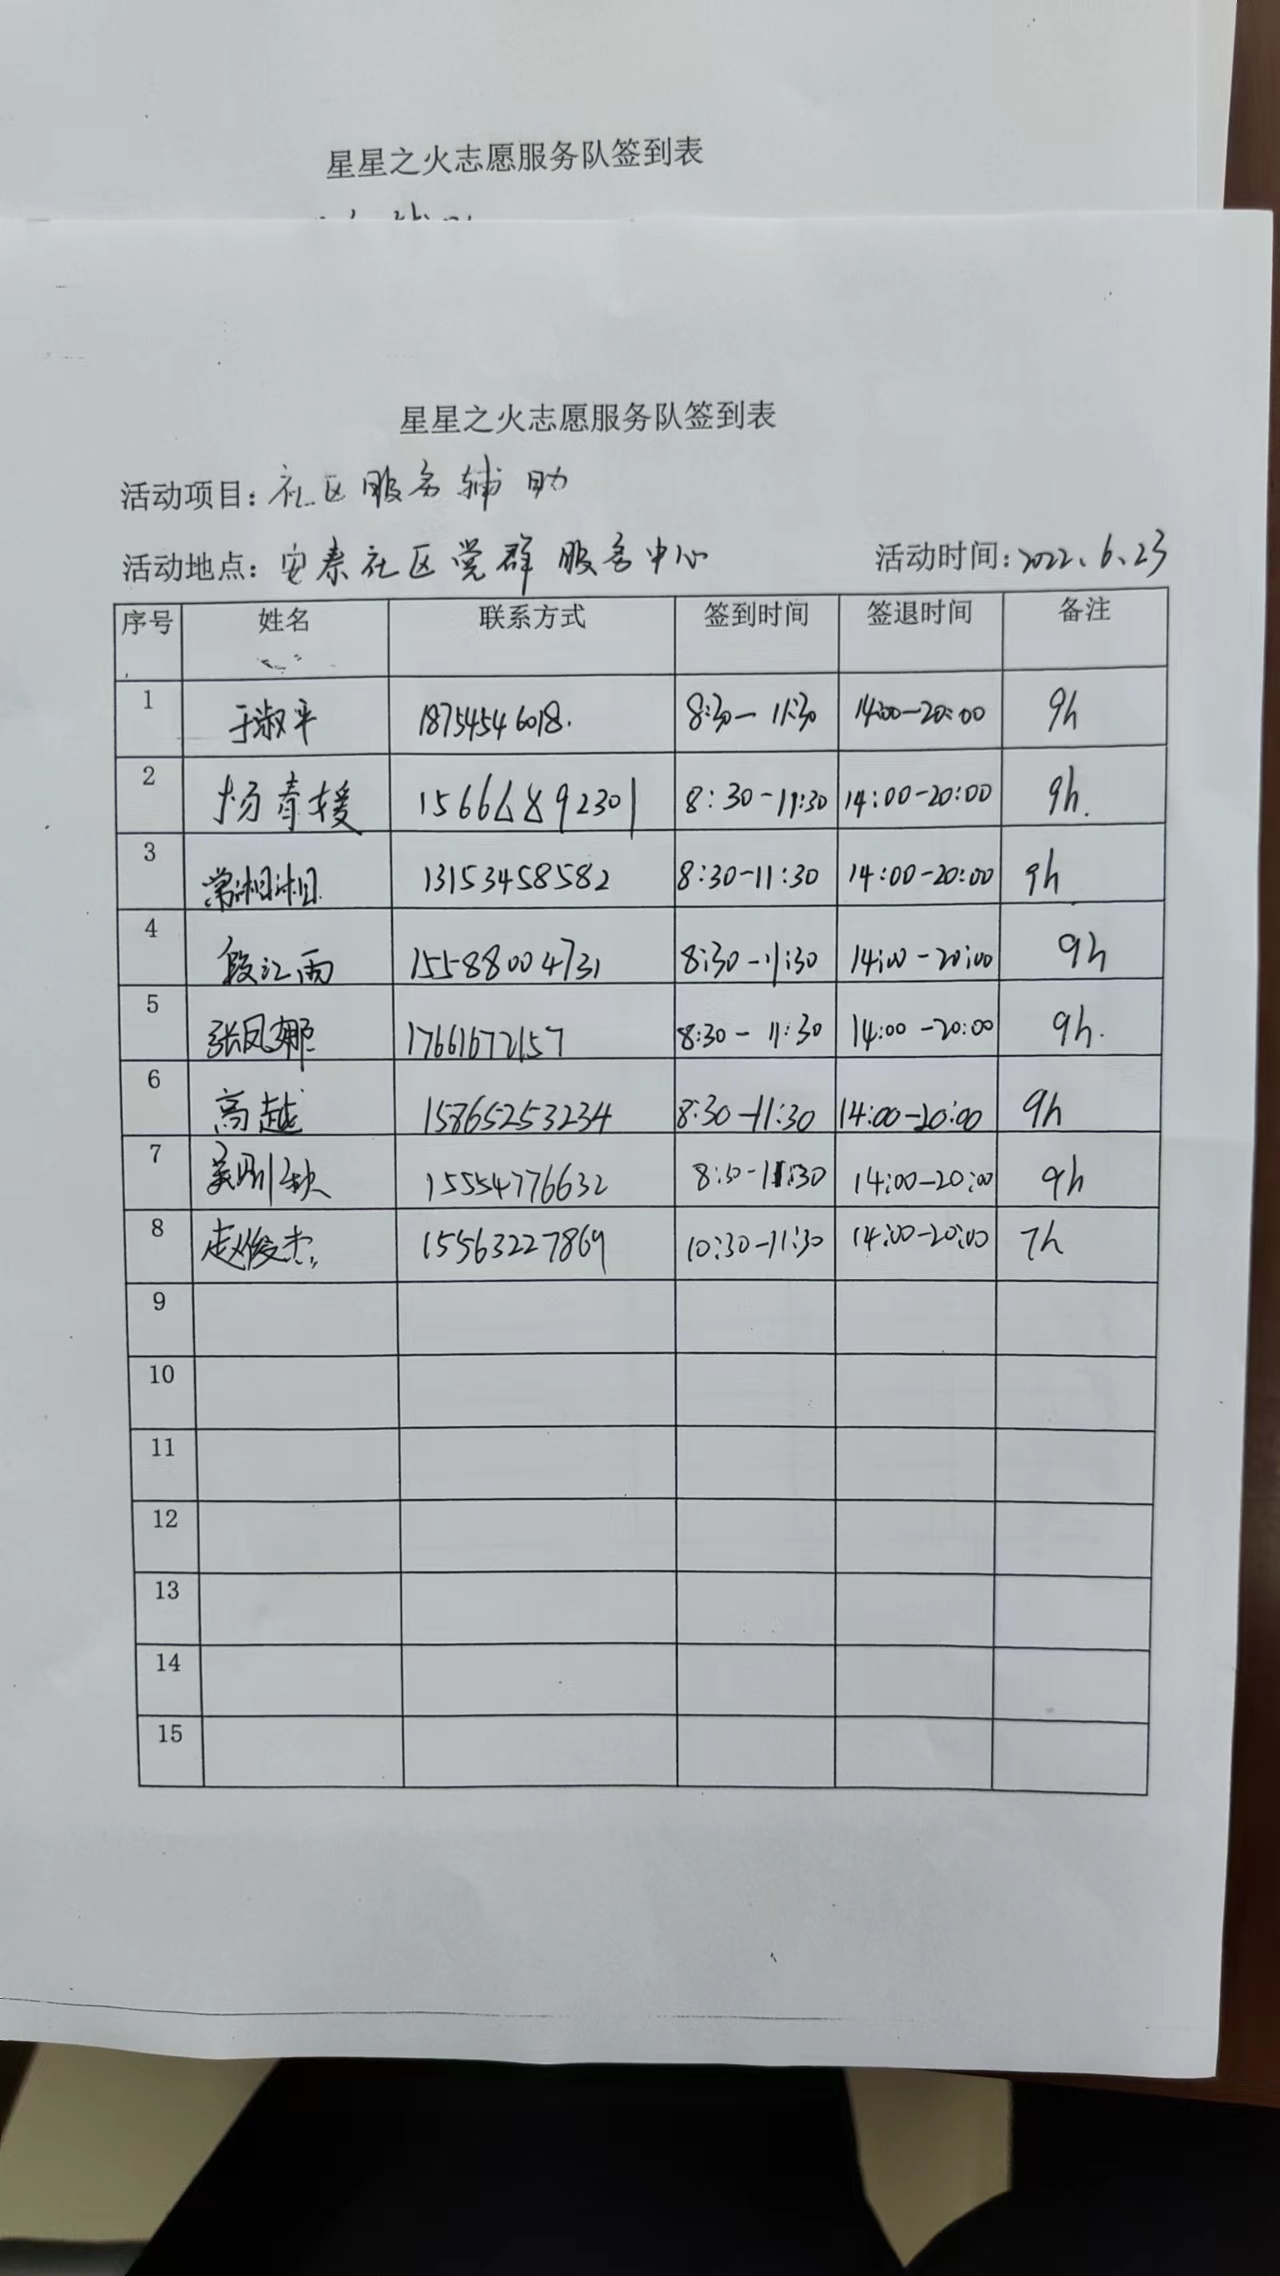 星星之火志愿服务队签到表
星星之火志愿服务队签到表
活动项目：社区服务辅助
活动地点：安泰社区党群服务中心 活动时间：2022.6.23
序号 姓名 联系方式 签到时间 签退时间 备注
1 于淑平 18754546018. 8:30-11:30 14:00-20:00 9h
2 杨青媛 15666892301 8:30-11:30 14:00-20:00 9h.
3 常湘湘 13153458582 8:30-11:30 14:00-20:00 9h
4 段江雨 15588004731 8:30-11:30 14:00-20:00 9h
5 张凤娜 17661672157 8:30-11:30 14:00-20:00 9h.
6 高越 15865253234 8:30-11:30 14:00-20:00 9h
7 15554776632 8:30-11:30 14:00-20:00 9h
8 赵俊杰 15563227869 10:30-11:30 14:00-20:00 7h
9
10
11
12
13
14
15